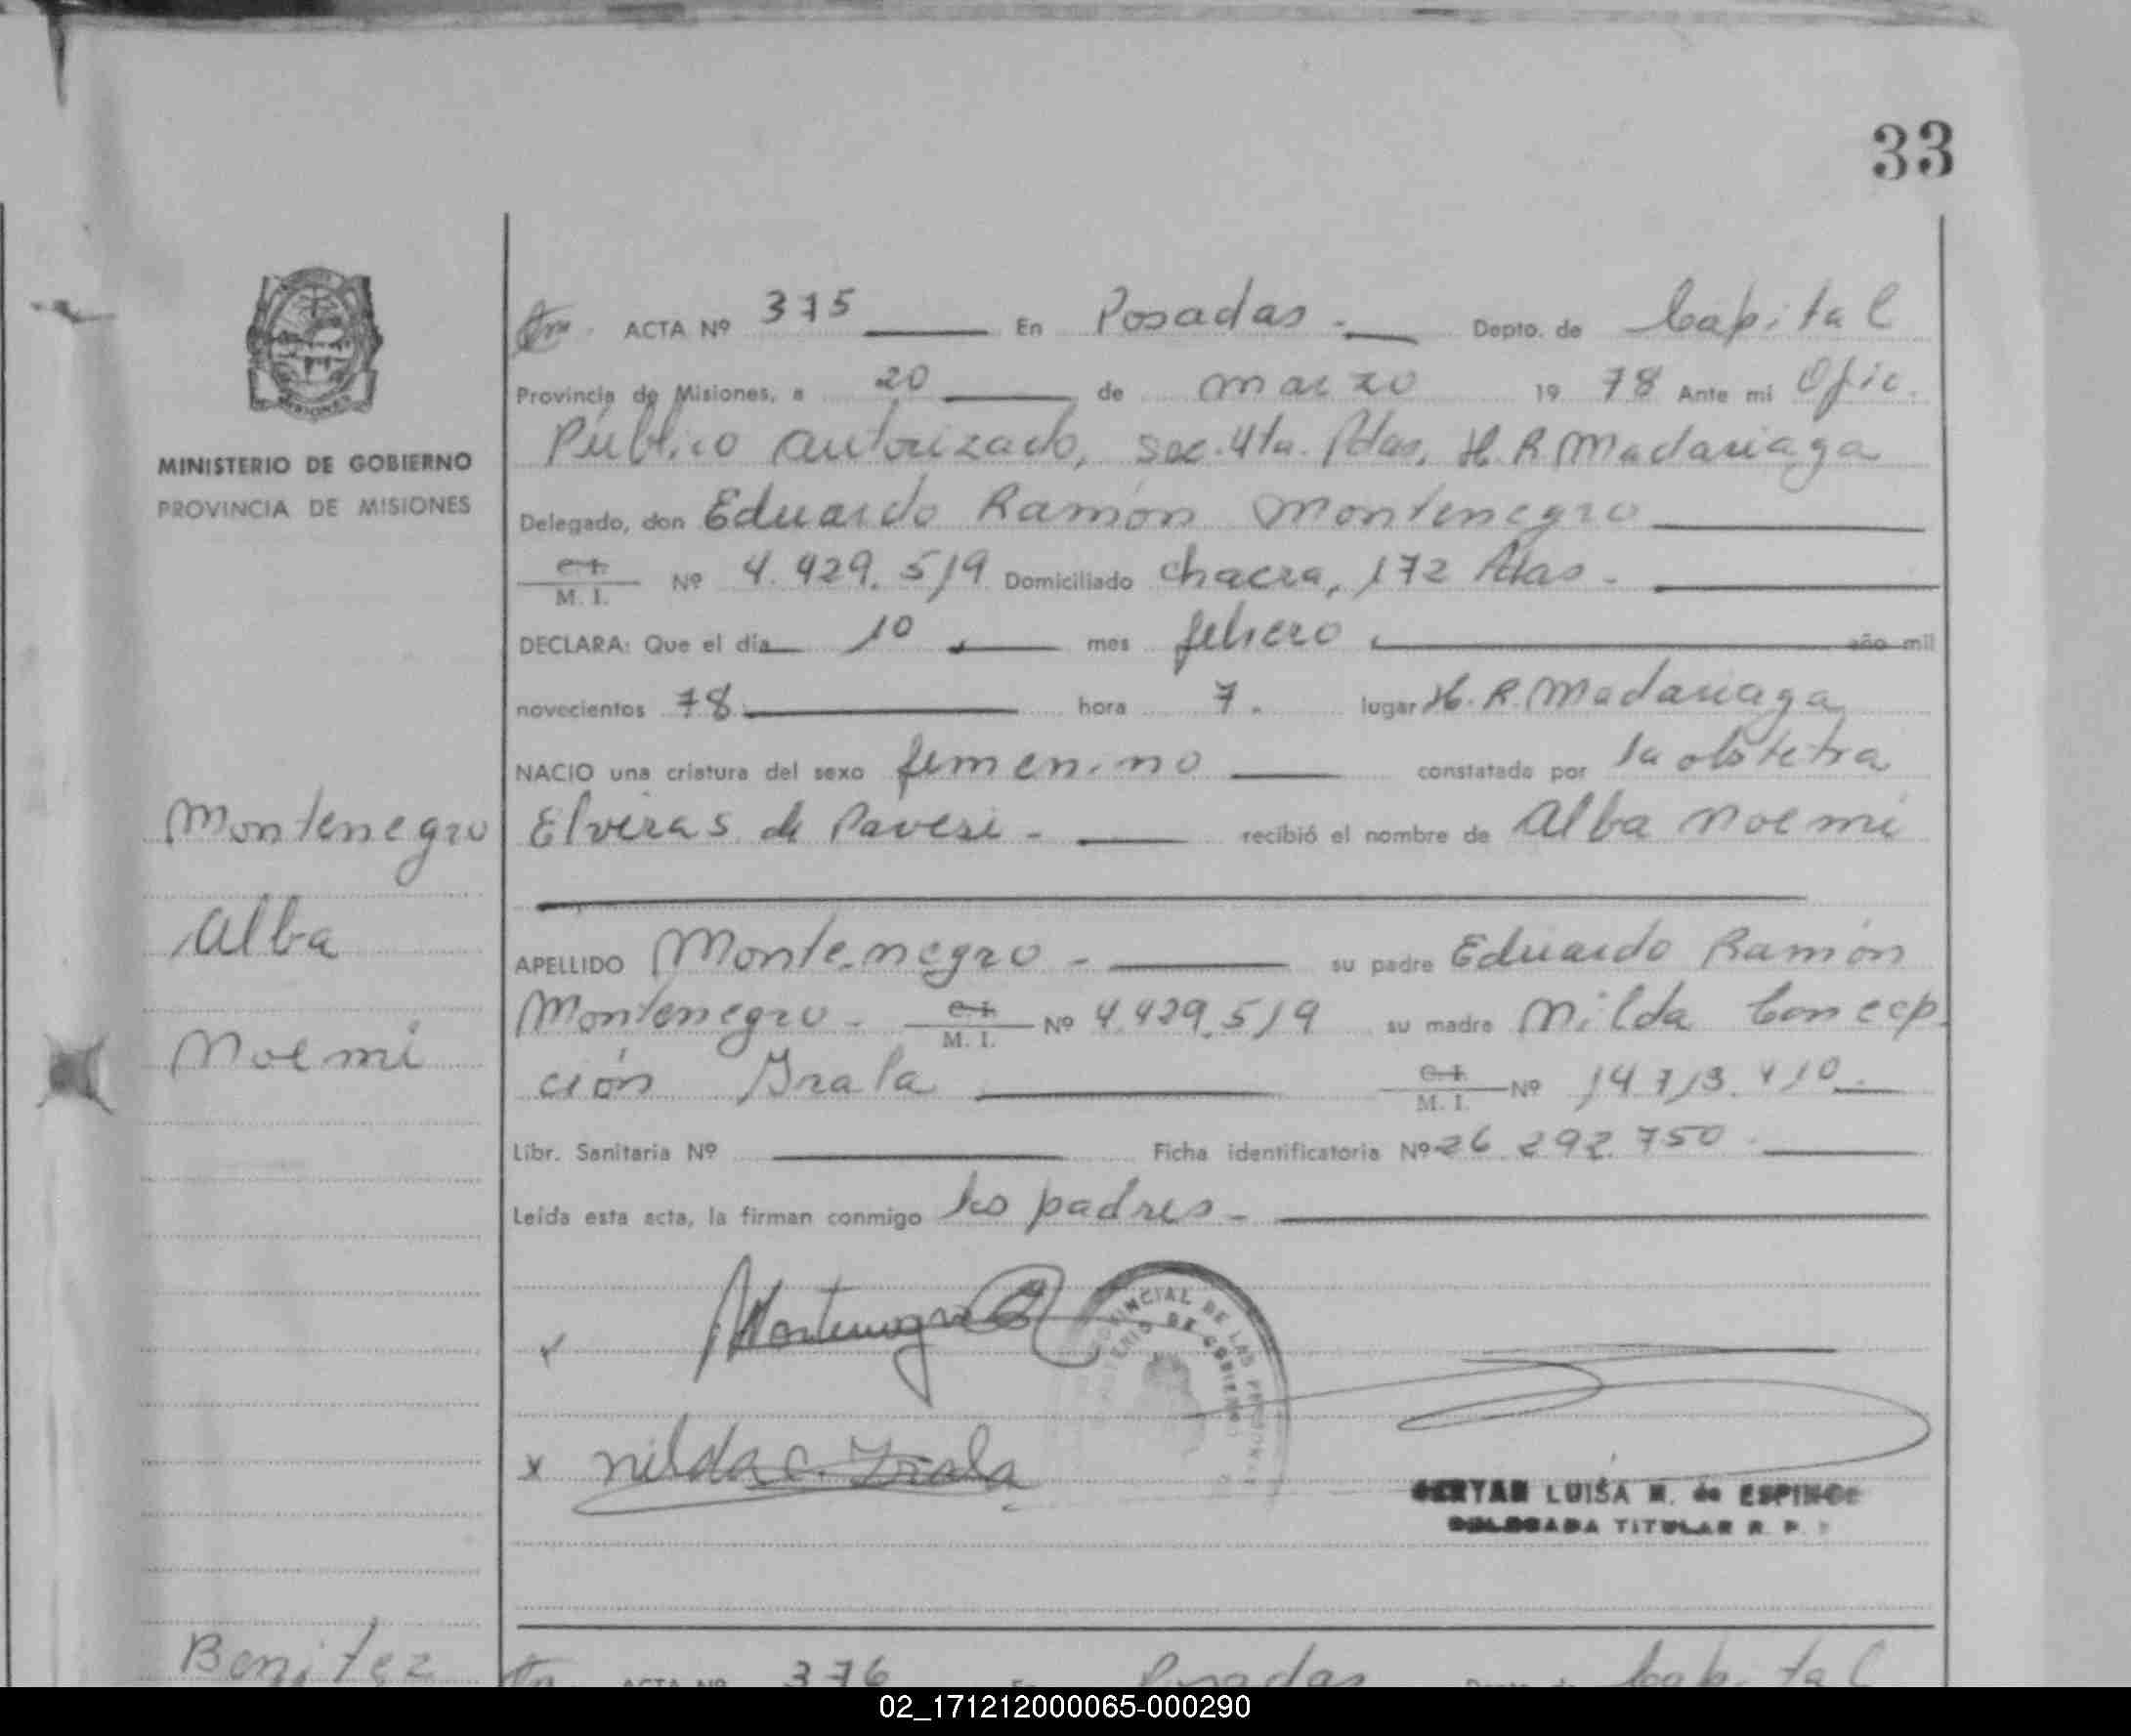 33
ACTA Nº 375 En Posadas.- Depto. de Capital
Provincia de Misiones, a 20 de marzo 19 78 Ante mi Ofic.
Público autorizado, Sec. 4ta. Pdas, H. R. Madariaga
MINISTERIO DE GOBIERNO
PROVINCIA DE MISIONES
Delegado, don Eduardo Ramón Montenegro
C.I. M. I. Nº 4.429.519 Domiciliado chacra, 172 Pdas.-
DECLARA: Que el día 10 mes febrero año mil
novecientos 78 hora 7. lugar H. R. Madariaga
NACIO una criatura del sexo femenino constatada por la obstetra
Montenegro
Elvira S. de Pavesi.- recibió el nombre de Alba Noemi
Alba
APELLIDO Montenegro.- su padre Eduardo Ramón
Montenegro.- C.I. M. I. Nº 4.429.519 su madre Nilda Concep
Noemi
ción Irala C.I. M. I. Nº 14.713.410.
Libr. Sanitaria Nº Ficha identificatoria Nº 26.292.750.
Leída esta acta, la firman conmigo los padres.-
Montenegro
PROVINCIAL DE LAS PERSONAS
MINISTERIO DE GOBIERNO
x Nilda C. Irala
LUISA M. de ESPINOZA
DELEGADA TITULAR R. P.
Benitez
ACTA Nº 376 En Posadas Depto. de Capital
02_171212000065-000290